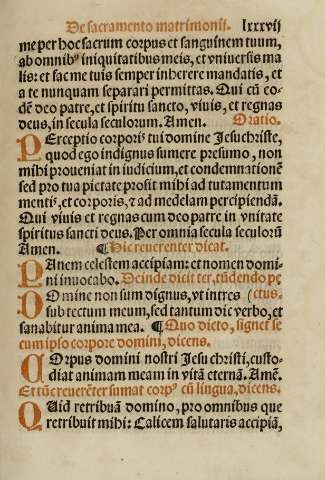 De sacramento matrimonii. lxxxvij
me per hoc sacrum corpus et sanguinem tuum,
ab omnibꝰ iniquitatibus meis, et vniuersis ma
lis: et fac me tuis semper inherere mandatis, et
a te nunquam separari permittas. Qui cū eo-
dē deo patre, et spiritu sancto, viuis, et regnas
deus, in secula seculorum. Amen. Oratio.
PErceptio corporiˢ tui domine Jesuchriste,
quod ego indignus sumere presumo, non
mihi proueniat in iudicium, et condemnationē
sed pro tua pietate prosit mihi ad tutamentum
mentiˢ, et corporis, ⁊ ad medelam percipiendā.
Qui viuis et regnas cum deo patre in vnitate
spiritus sancti deus. Per omnia secula seculorū
Amen. ¶ Hic reuerenter dicat.
PAnem celestem accipiam: et nomen domi-
ni inuocabo. Deinde dicit ter, tūdendo pe
DOmine non sum dignus, vt intres (ctus.
sub tectum meum, sed tantum dic verbo, et
sanabitur anima mea. ¶ Quo dicto, signet se
cum ipso corpore domini, dicens.
COrpus domini nostri Jesu christi, custo-
diat animam meam in vitā eternā. Amē.
Et tūc reuerēter sumat corpꝰ cū lingua, dicens.
QUid retribuā domino, pro omnibus que
retribuit mihi: Calicem salutaris accipiā,